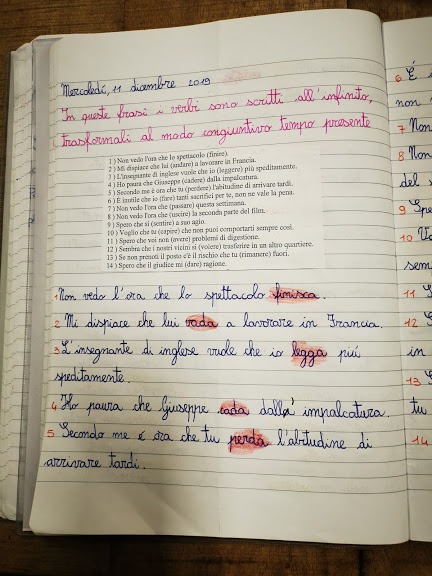 Mercoledí, 11 dicembre 2019
In queste frasi i verbi sono scritti all'infinito,
trasformali al modo congiuntivo tempo presente
1 ) Non vedo l'ora che lo spettacolo (finire).
2 ) Mi dispiace che lui (andare) a lavorare in Francia.
3 ) L'insegnante di inglese vuole che io (leggere) più speditamente.
4 ) Ho paura che Giuseppe (cadere) dalla impalcatura.
5 ) Secondo me è ora che tu (perdere) l'abitudine di arrivare tardi.
6 ) È inutile che io (fare) tanti sacrifici per te, non ne vale la pena.
7 ) Non vedo l'ora che (passare) questa settimana.
8 ) Non vedo l'ora che (uscire) la seconda parte del film.
9 ) Spero che si (sentire) a suo agio.
10 ) Voglio che tu (capire) che non puoi comportarti sempre così.
11 ) Spero che voi non (avere) problemi di digestione.
12 ) Sembra che i nostri vicini si (volere) trasferire in un altro quartiere.
13 ) Se non prenoti il posto c'è il rischio che tu (rimanere) fuori.
14 ) Spero che il giudice mi (dare) ragione.
1 Non vedo l'ora che lo spettacolo finisca.
2 Mi dispiace che lui vada a lavorare in Francia.
3 L'insegnante di inglese vuole che io legga puí
speditamente.
4 Ho paura che Giuseppe cada dalla impalcatura.
5 Secondo me é ora che tu perda l'abitudine di
arrivare tardi.
6 É
non
7 Non
8 Non
del
9 Spe
10 Vo
sem
11 S
12 S
in
13 S
tu
14